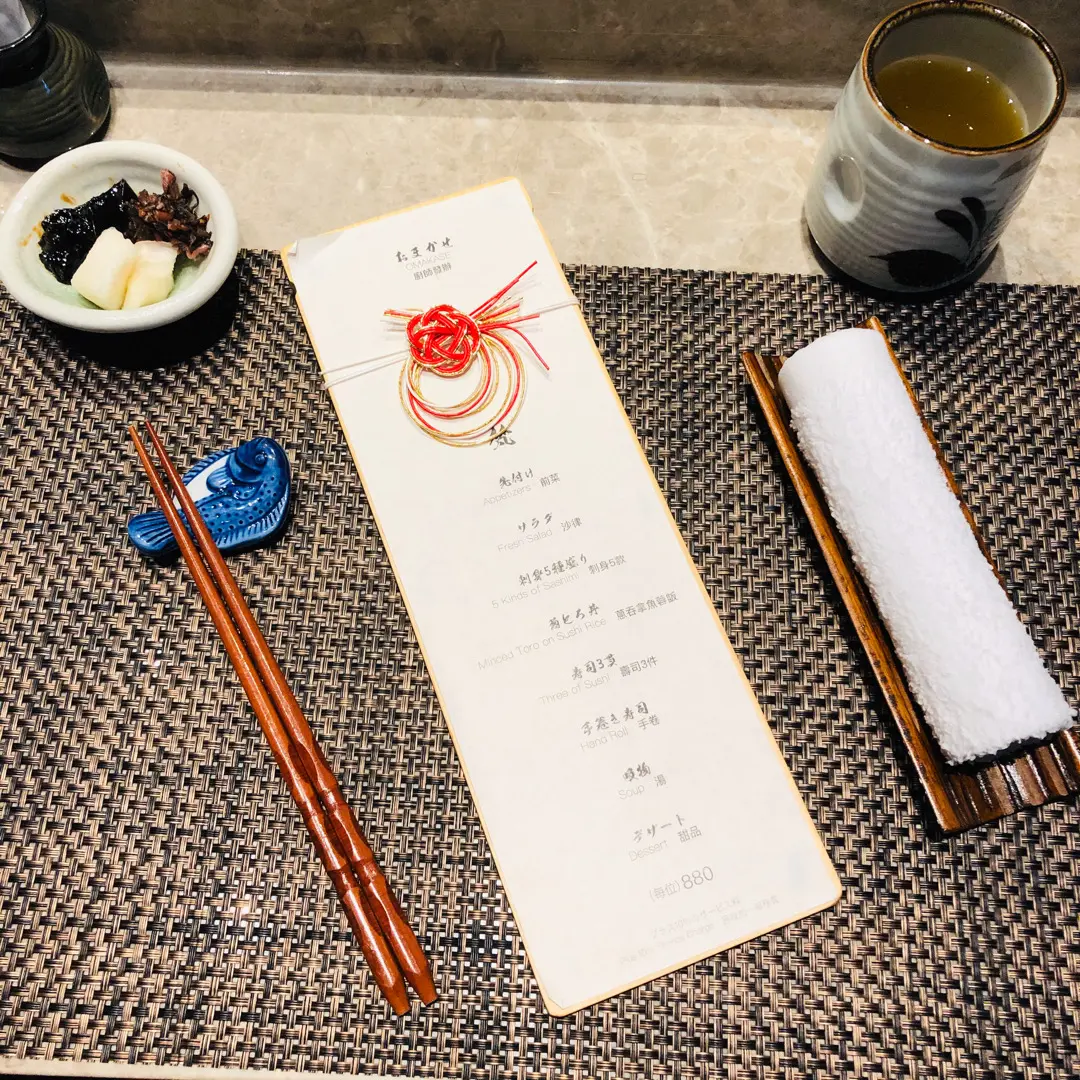 おまかせ
OMAKASE
廚師發辦
先付け
Appetizers 前菜
サラダ
Fresh Salad 沙律
刺身5種盛り
5 Kinds of Sashimi 刺身5款
葱とろ丼
Minced Toro on Sushi Rice 蔥吞拿魚蓉飯
寿司3貫
Three of Sushi 壽司3件
手巻き寿司
Hand Roll 手卷
吸物
Soup 湯
デザート
Dessert 甜品
(每位)880
Service Charge